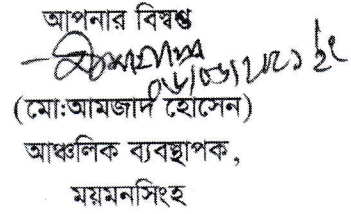 আপনার বিশ্বস্ত
(মো:আমজাদ হোসেন)
আঞ্চলিক ব্যবস্থাপক,
ময়মনসিংহ